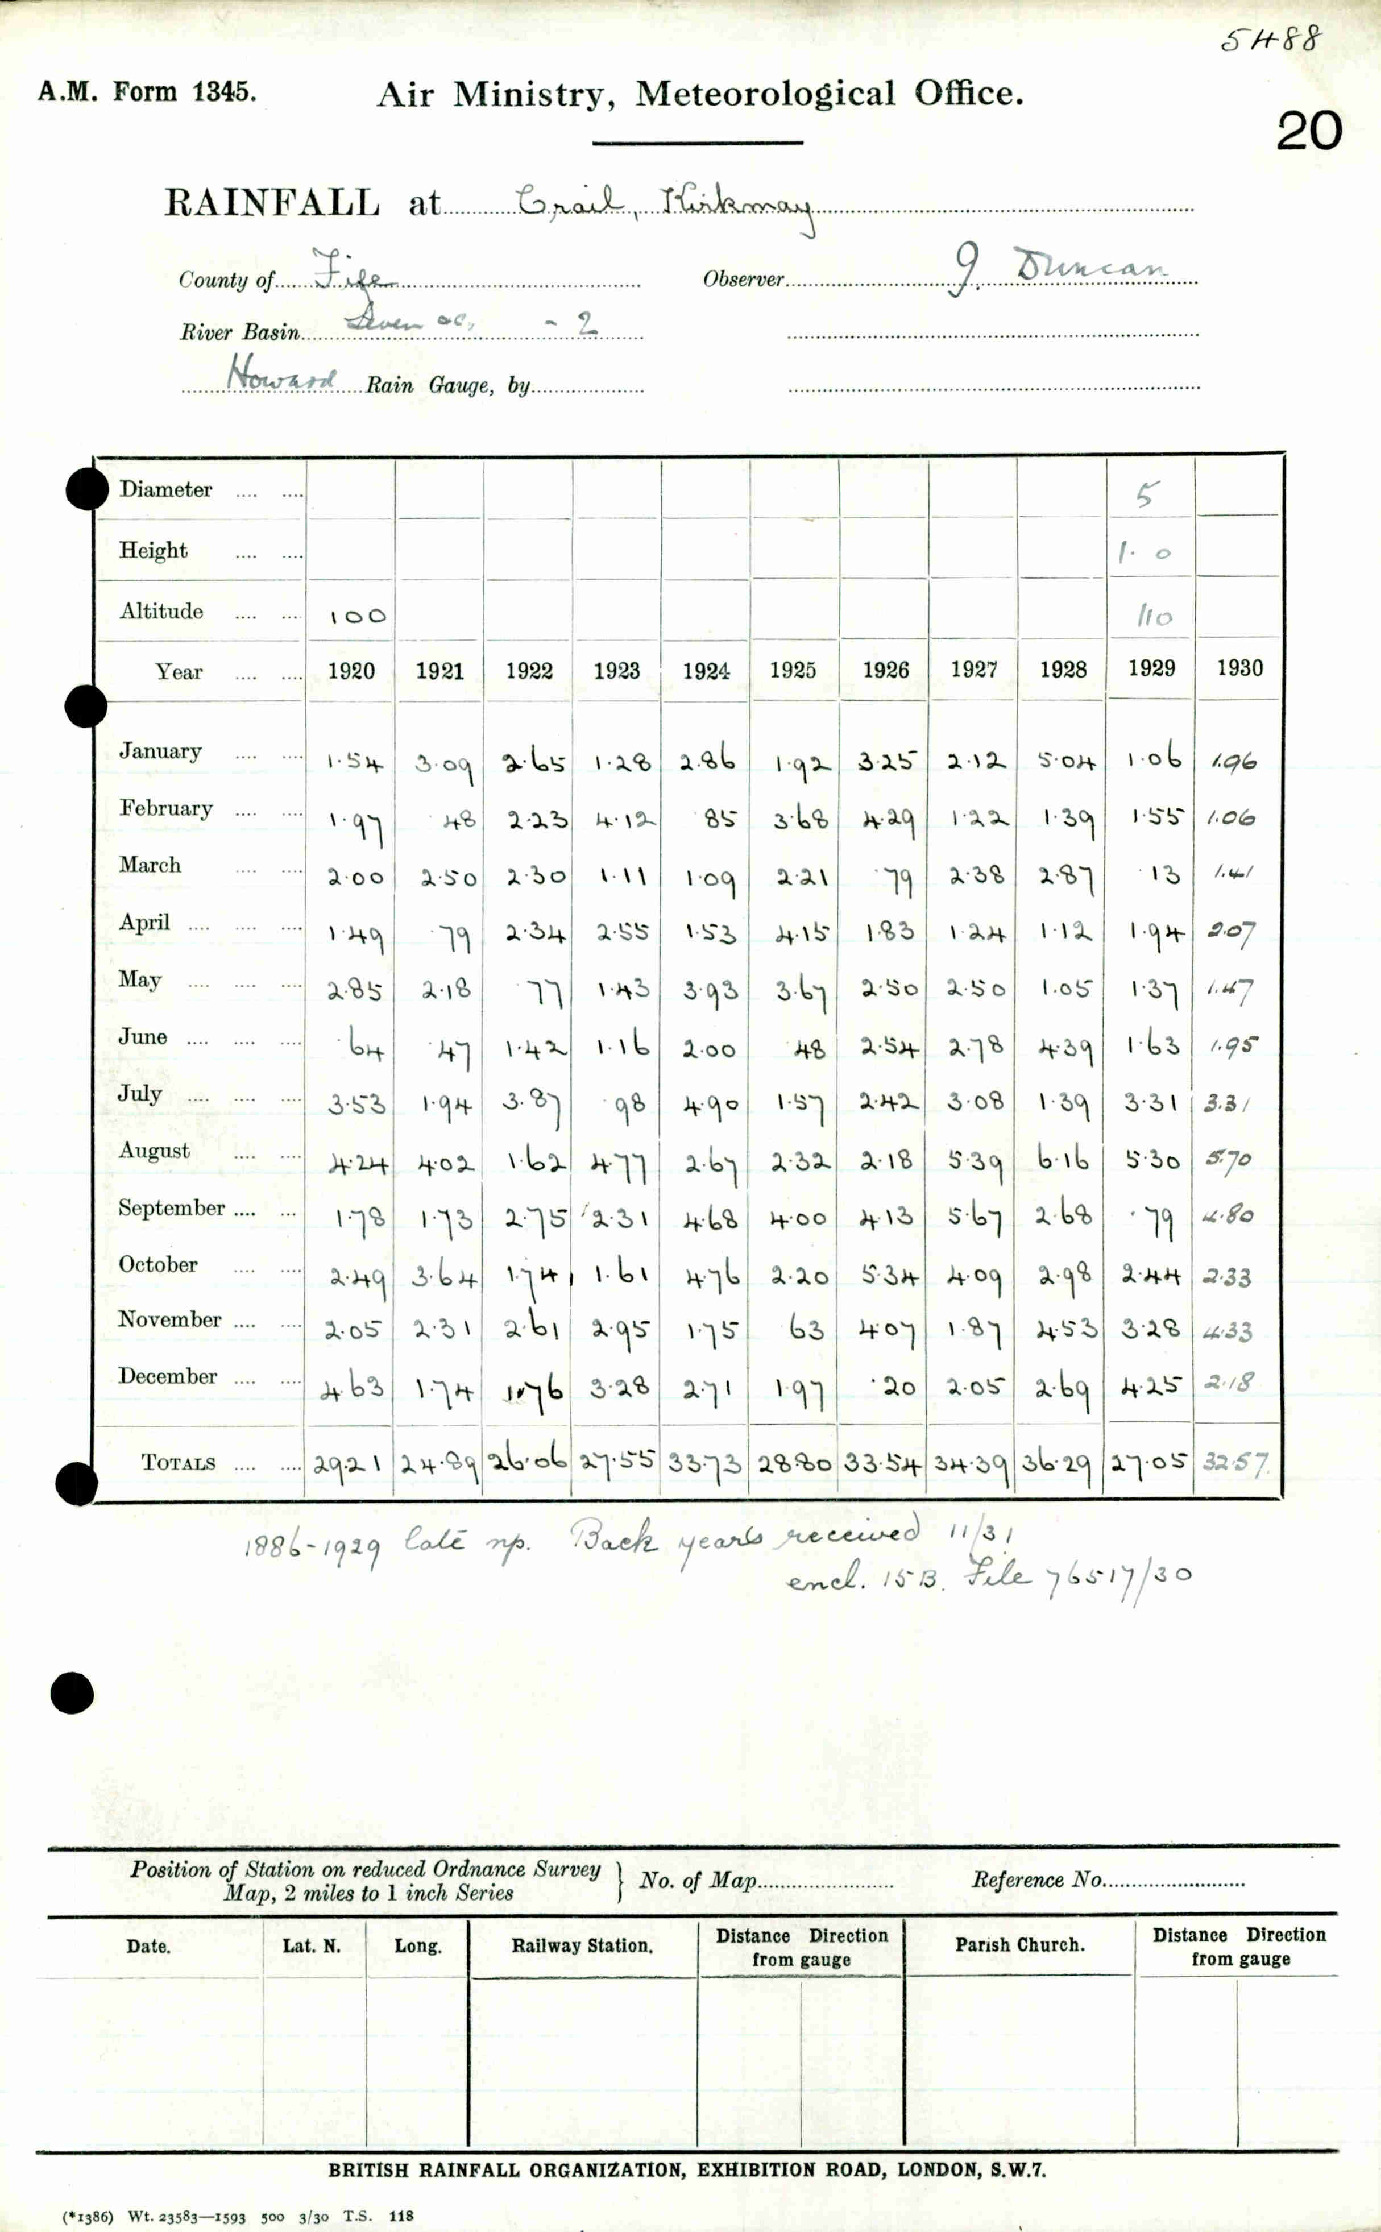 5488
A.M. Form 1345. Air Ministry, Meteorological Office.
20
RAINFALL at Crail, Kirkmay
County of Fife Observer J. Duncan
River Basin Leven &c, - 2
Howard Rain Gauge, by
Diameter .... .... 5
Height .... .... 1· 0
Altitude .... .... 100 110
Year .... .... 1920 1921 1922 1923 1924 1925 1926 1927 1928 1929 1930
January .... .... 1·54 3·09 2·65 1·28 2·86 1·92 3·25 2·12 5·04 1·06 1.96
February .... .... 1·97 ·48 2·23 4·12 ·85 3·68 4·29 1·22 1·39 1·55 1.06
March .... .... 2·00 2·50 2·30 1·11 1·09 2·21 ·79 2·38 2·87 ·13 1.41
April .... .... .... 1·49 ·79 2·34 2·55 1·53 4·15 1·83 1·24 1·12 1·94 2.07
May .... .... .... 2·85 2·18 ·77 1·43 3·93 3·67 2·50 2·50 1·05 1·37 1.47
June .... .... .... ·64 ·47 1·42 1·16 2·00 ·48 2·54 2·78 4·39 1·63 1.95
July .... .... .... 3·53 1·94 3·87 ·98 4·90 1·57 2·42 3·08 1·39 3·31 3.31
August .... .... 4·24 4·02 1·62 4·77 2·67 2·32 2·18 5·39 6·16 5·30 5.70
September .... .... 1·78 1·73 2·75 2·31 4·68 4·00 4·13 5·67 2·68 ·79 4.80
October .... .... 2·49 3·64 1·74 1·61 4·76 2·20 5·34 4·09 2·98 2·44 2.33
November .... .... 2·05 2·31 2·61 2·95 1·75 ·63 4·07 1·87 4·53 3·28 4.33
December .... .... 4·63 1·74 1·76 3·28 2·71 1·97 ·20 2·05 2·69 4·25 2.18
TOTALS .... .... 29·21 24·89 26·06 27·55 33·73 28·80 33·54 34·39 36·29 27·05 32·57
1886-1929 late np. Back years received 11/31
encl. 15B. File 76517/30
Position of Station on reduced Ordnance Survey
Map, 2 miles to 1 inch Series } No. of Map Reference No.
Date. Lat. N. Long. Railway Station. Distance Direction from gauge Parish Church. Distance Direction from gauge
BRITISH RAINFALL ORGANIZATION, EXHIBITION ROAD, LONDON, S.W.7.
(*1386) Wt. 23583—1593 500 3/30 T.S. 118